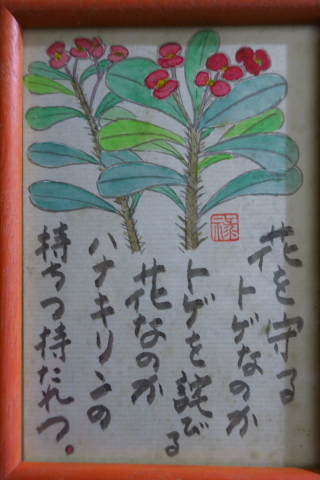 花を守る
トゲなのか
トゲを詫びる
花なのか
ハナキリンの
持ちつ持たれつ。